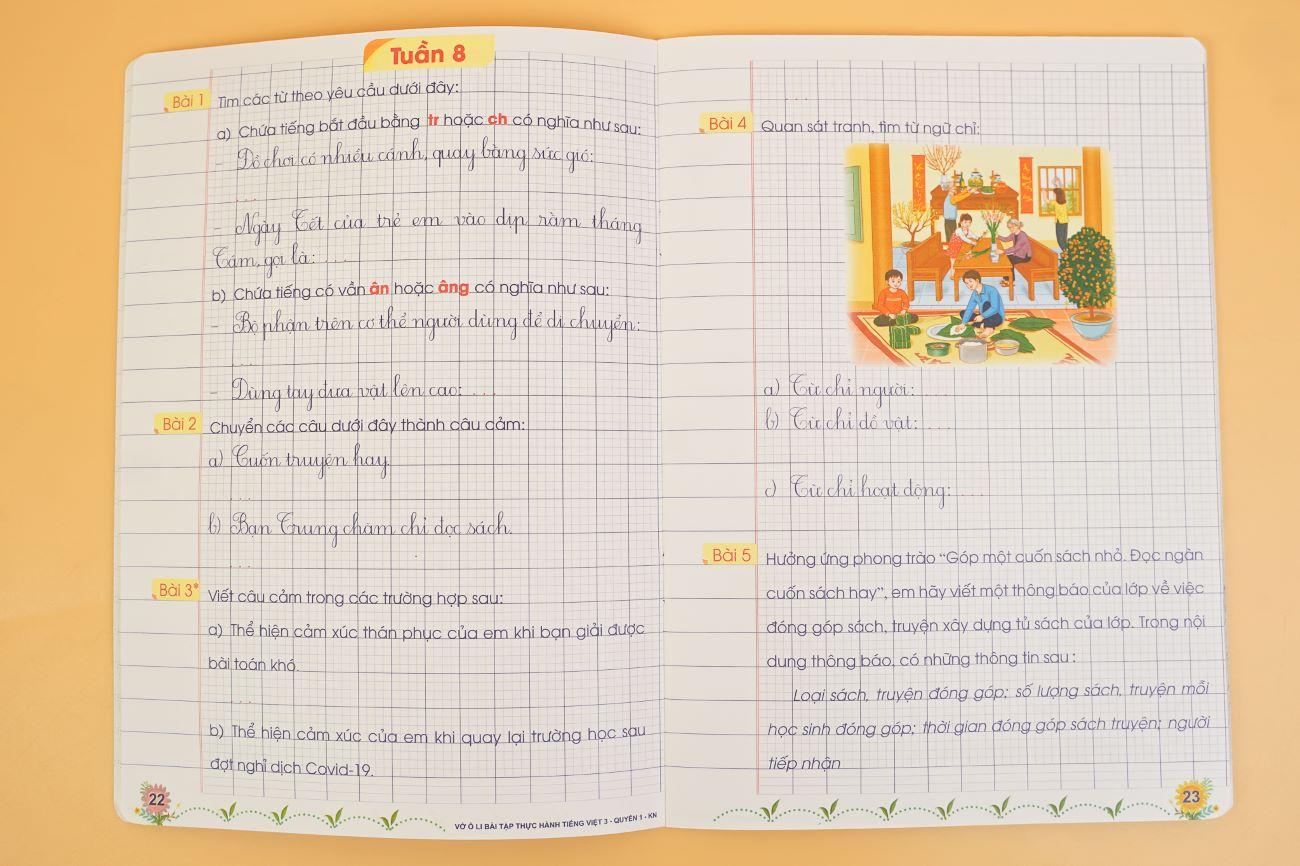 Tuần 8
Bài 1 Tìm các từ theo yêu cầu dưới đây:
a) Chứa tiếng bắt đầu bằng tr hoặc ch có nghĩa như sau:
- Đồ chơi có nhiều cánh, quay bằng sức gió:
...
- Ngày Tết của trẻ em vào dịp rằm tháng
Tám, gọi là: ...
b) Chứa tiếng có vần ân hoặc âng có nghĩa như sau:
- Bộ phận trên cơ thể người dùng để di chuyển:
...
- Dùng tay đưa vật lên cao: ...
Bài 2 Chuyển các câu dưới đây thành câu cảm:
a) Cuốn truyện hay.
...
b) Bạn Trung chăm chỉ đọc sách.
...
Bài 3* Viết câu cảm trong các trường hợp sau:
a) Thể hiện cảm xúc thán phục của em khi bạn giải được
bài toán khó.
...
b) Thể hiện cảm xúc của em khi quay lại trường học sau
đợt nghỉ dịch Covid-19.
22
VỞ Ô LI BÀI TẬP THỰC HÀNH TIẾNG VIỆT 3 - QUYỂN 1 - KN
...
Bài 4 Quan sát tranh, tìm từ ngữ chỉ:
a) Từ chỉ người: ...
b) Từ chỉ đồ vật: ...
c) Từ chỉ hoạt động: ...
Bài 5 Hưởng ứng phong trào "Góp một cuốn sách nhỏ. Đọc ngàn
cuốn sách hay", em hãy viết một thông báo của lớp về việc
đóng góp sách, truyện xây dựng tủ sách của lớp. Trong nội
dung thông báo, có những thông tin sau:
Loại sách, truyện đóng góp; số lượng sách, truyện mỗi
học sinh đóng góp; thời gian đóng góp sách truyện; người
tiếp nhận
23